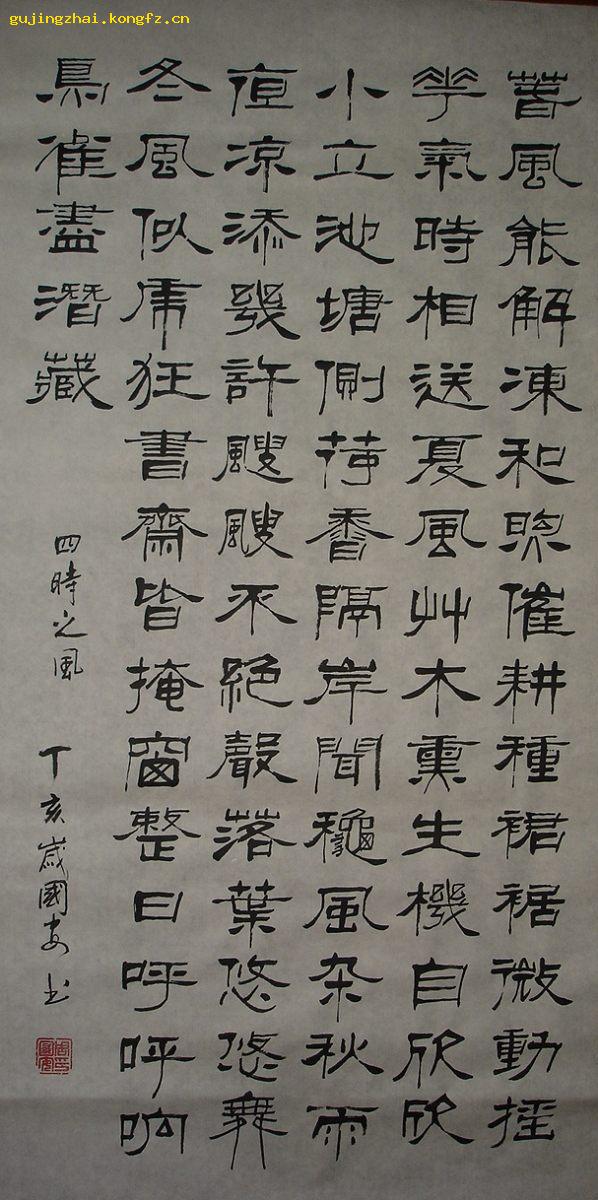 gujingzhai.kongfz.cn
萅風能解凍和煦催耕種裙裾微動搖
華氣時相送夏風艸木熏生機自欣欣
小立池塘側荷香隔岸聞龝風杂秋雨
夜凉添幾許颼颼不絕聲落葉悠悠舞
冬風似虎狂書齋皆掩窗整日呼呼响
鳥雀盡潛藏
四時之風 丁亥歲國安书